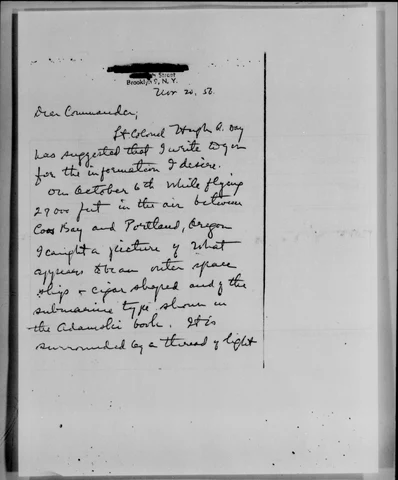 Street
Brooklyn 5, N. Y.
Nov 20, 56.
Dear Commander;
Lt Colonel Hugh A. Day
has suggested that I write to you
for the information I desire.
On October 6th while flying
27000 feet in the air between
Coos Bay and Portland, Oregon
I caught a picture of what
appears to be an outer space
ship - cigar shaped and of the
submarine type shown in
the Adamski book. It is
surrounded by a thread of light